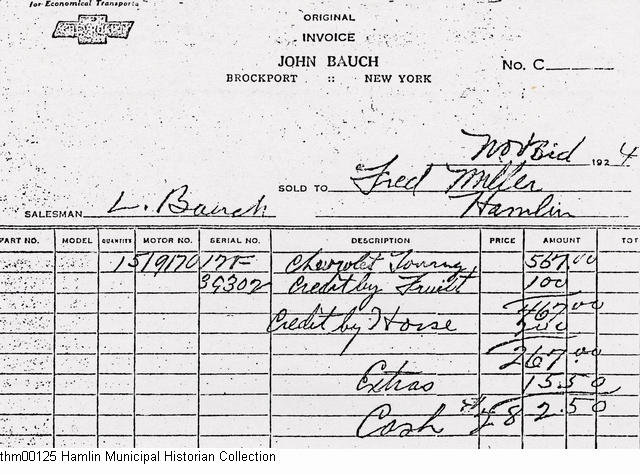 for Economical Transporta
ORIGINAL
INVOICE
JOHN BAUCH
BROCKPORT :: NEW YORK
No. C
1924
SOLD TO Fred Miller
Hamlin
SALESMAN L. Bauch
PART NO. MODEL QUANTITY MOTOR NO. SERIAL NO. DESCRIPTION PRICE AMOUNT TOT
1 Chevrolet Touring 567.00
39302 Credit by Fruit 100
467.00
Credit by Horse 200
267.00
Extras 15.50
Cash $282.50
thm00125 Hamlin Municipal Historian Collection